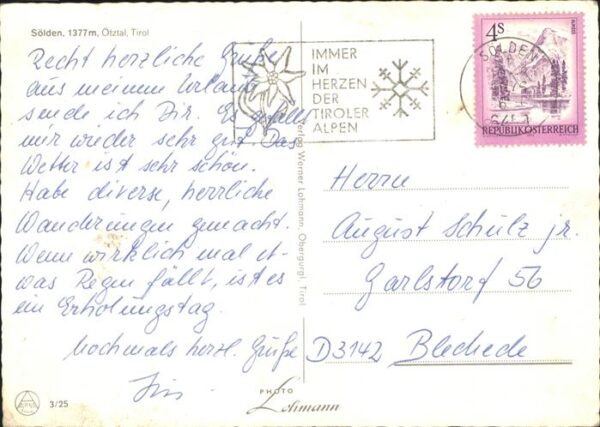 Sölden, 1377m, Ötztal, Tirol
Recht herzliche Grüße
aus meinem Urlaub
sende ich Dir. Es gefällt
mir wieder sehr gut. Das
Wetter ist sehr schön.
Habe diverse, herrliche
Wanderungen gemacht.
Wenn wirklich mal et-
was Regen fällt, ist es
ein Erholungstag.
Nochmals herzl. Grüße
3/25
IMMER
IM
HERZEN
DER
TIROLER
ALPEN
SÖLDEN
4S
REPUBLIK ÖSTERREICH
Verlag Werner Lohmann, Obergurgl, Tirol
Herrn
August Schulz jr.
Garlstorf 56
D3142 Bleckede
PHOTO
Lohmann